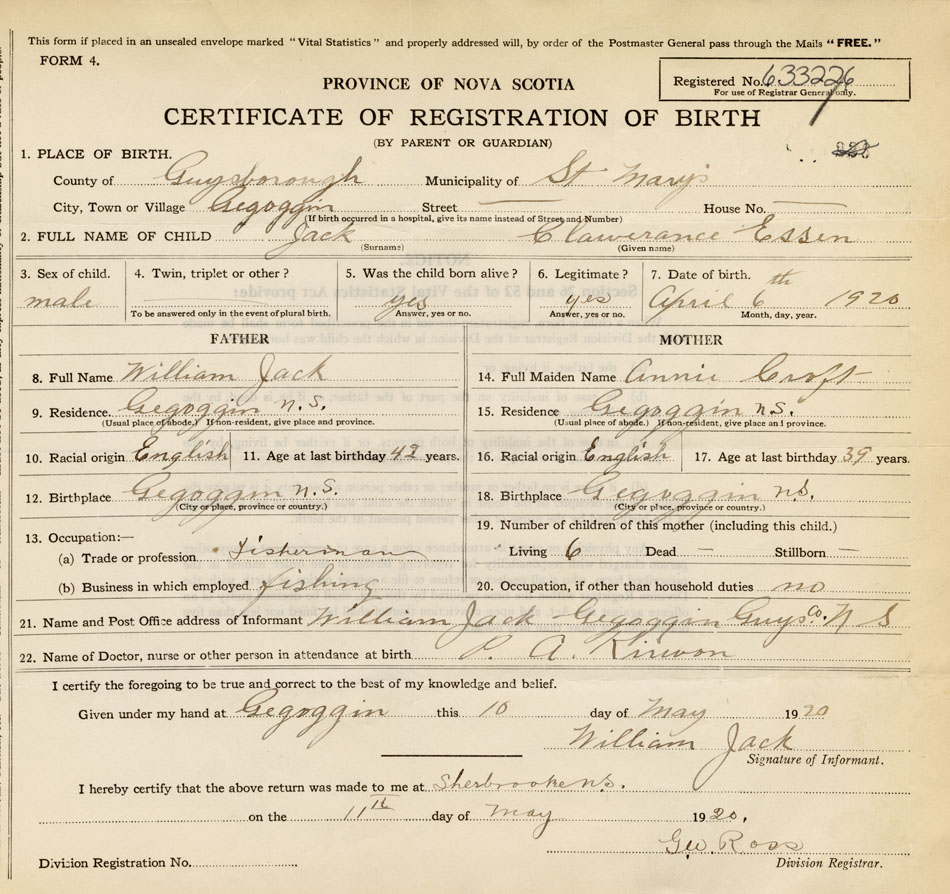 This form if placed in an unsealed envelope marked "Vital Statistics" and properly addressed will, by order of the Postmaster General pass through the Mails "FREE."
FORM 4.
Registered No. 633226
For use of Registrar General only.
PROVINCE OF NOVA SCOTIA
CERTIFICATE OF REGISTRATION OF BIRTH
(BY PARENT OR GUARDIAN)
1. PLACE OF BIRTH.
County of Guysborough Municipality of St Mary's
City, Town or Village Gegoggin Street — House No. —
(If birth occurred in a hospital, give its name instead of Street and Number)
2. FULL NAME OF CHILD Jack Clawerance Essen
(Surname) (Given name)
3. Sex of child. 4. Twin, triplet or other? 5. Was the child born alive? 6. Legitimate? 7. Date of birth.
male yes yes April 6th 1920
To be answered only in the event of plural birth. Answer, yes or no. Answer, yes or no. Month, day, year.
FATHER MOTHER
8. Full Name William Jack 14. Full Maiden Name Annie Croft
9. Residence. Gegoggin n.s. 15. Residence Gegoggin n.s.
(Usual place of abode.) If non-resident, give place and province. (Usual place of abode.) If non-resident, give place and province.
10. Racial origin English 11. Age at last birthday 43 years. 16. Racial origin English 17. Age at last birthday 39 years.
12. Birthplace Gegoggin n.s. 18. Birthplace Gegoggin n.s.
(City or place, province or country.) (City or place, province or country.)
13. Occupation:— 19. Number of children of this mother (including this child.)
(a) Trade or profession Fisherman Living 6 Dead — Stillborn —
(b) Business in which employed fishing 20. Occupation, if other than household duties no
21. Name and Post Office address of Informant William Jack Gegoggin Guys Co. N S
22. Name of Doctor, nurse or other person in attendance at birth P. A. Kirwon
I certify the foregoing to be true and correct to the best of my knowledge and belief.
Given under my hand at Gegoggin this 10 day of May 1920
William Jack
Signature of Informant.
I hereby certify that the above return was made to me at Sherbrooke n.s.
on the 11th day of may 1920.
Geo. Ross
Division Registration No. Division Registrar.